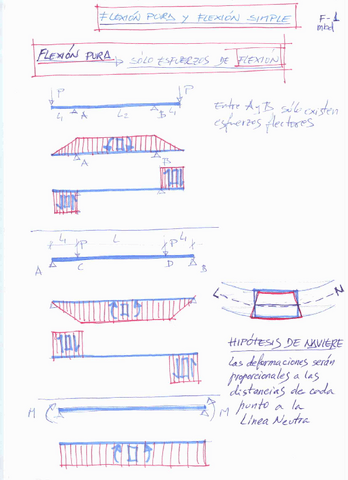 FLEXIÓN PURA Y FLEXIÓN SIMPLE
F-1
FLEXIÓN PURA → SÓLO ESFUERZOS DE FLEXIÓN
P P
A B
L₁ L₂ L₁
Entre A y B sólo existen
esfuerzos flectores
A B
L₁ L L₁
P P
A C D B
L N
HIPÓTESIS DE NAVIERE
Las deformaciones serán
proporcionales a las
distancias de cada
punto a la
Línea Neutra
M